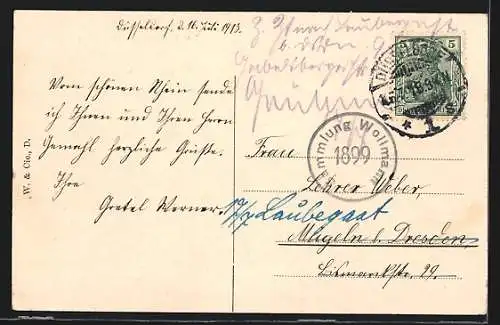 Düsseldorf, d. 16. Juli 1913.
Vom schönen Rhein sende
ich Ihnen und Ihrem Herrn
Gemahl herzliche Grüße.
Ihre
Gretel Werner.
W. & Cie., D.
Z. Zt
5
DÜSSELDORF
* 1 s
Sammlung Wollmann
1899
Frau
Lehrer Weber,
Laubegast
Mügeln b. Dresden
Bismarckstr. 29.